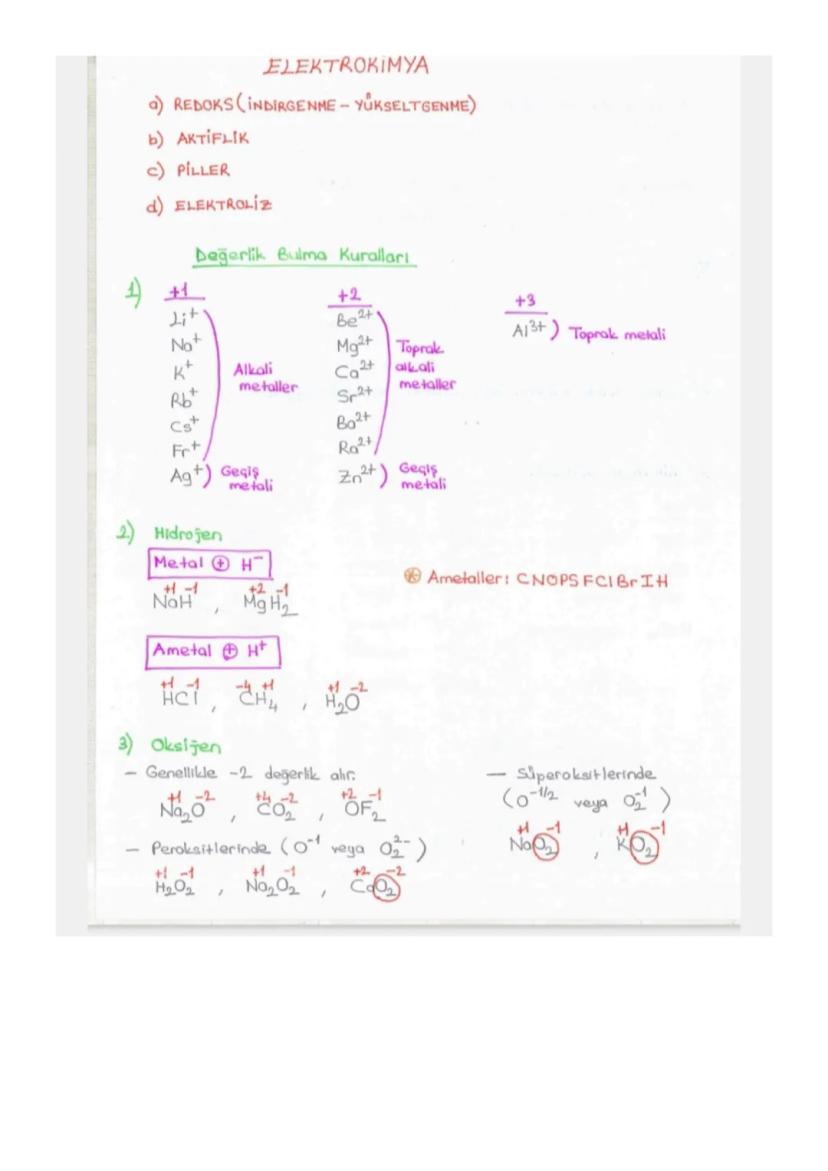 ELEKTROKİMYA
a) REDOKS (İNDİRGENME – YÜKSELTGENME)
b) AKTİFLİK
c) PİLLER
d) ELEKTROLİZ
Değerlik Bulma Kuralları
1) +1
Li⁺
Na⁺
K⁺
Rb⁺
Cs⁺
Fr⁺
Alkali metaller
Ag⁺) Geçiş metali
+2
Be²⁺
Mg²⁺
Ca²⁺
Sr²⁺
Ba²⁺
Ra²⁺
Toprak alkali metaller
Zn²⁺) Geçiş metali
+3
Al³⁺) Toprak metali
2) Hidrojen
Metal ⊕ H⁻
+1 -1 +2 -1
NaH , MgH₂
⊛ Ametaller: CNOPSFClBrIH
Ametal ⊕ H⁺
+1 -1 -4 +1 +1 -2
HCl , CH₄ , H₂O
3) Oksijen
– Genellikle -2 değerlik alır.
+1 -2 +4 -2 +2 -1
Na₂O , CO₂ , OF₂
– Peroksitlerinde (O⁻¹ veya O₂²⁻)
+1 -1 +1 -1 +2 -2
H₂O₂ , Na₂O₂ , CaO₂
– Süperoksitlerinde
(O⁻¹/² veya O₂⁻¹)
+1 -1 +1 -1
NaO₂ , KO₂